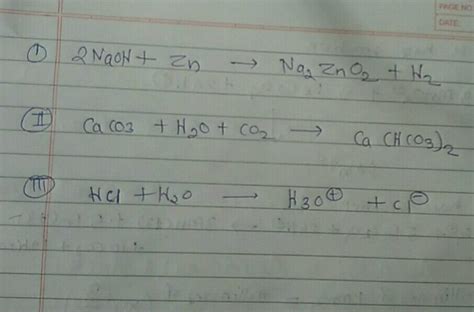 PAGE NO
DATE:
① 2NaOH + Zn → Na₂ZnO₂ + H₂
Ⅱ CaCO3 + H₂O + CO₂ → Ca(HCO3)₂
Ⅲ HCl + H₂O → H3O⊕ + Cl⊖